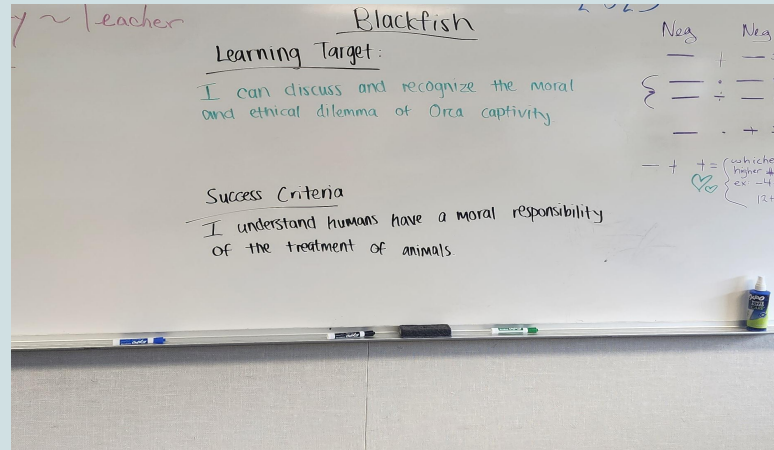 y ~ Teacher
Blackfish
Learning Target:
I can discuss and recognize the moral
and ethical dilemma of Orca captivity
Success Criteria
I understand humans have a moral responsibility
of the treatment of animals
Neg Neg
— + —
— · —
— ÷ —
— · +
— + + =
higher #
ex: -4
12+
EXPO